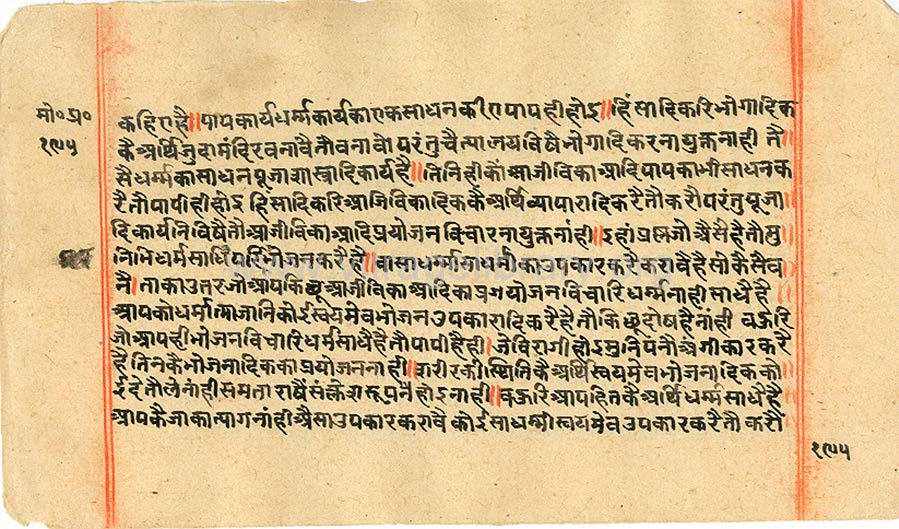 मो॰प्र॰
१९५
कहिएहै॥पापकार्यधर्म्मकार्यकाएकसाधनकीएपापहीहोइ॥हिंसादिकरिभोगादिक
कैअर्थिजुदामंदिरबनावैतौबनावोपरंतुचैत्यालयविषैभोगादिकरनायुक्तनाही तै
सैधर्म्मकासाधनपूजाशास्त्रादिकार्यहै॥तिनिहीकौंआजीविकाआदिपापकाभीसाधनक
रैतौपापीहीहोइ हिंसादिकरिआजिविकादिककैअर्थिव्यापारादिकरैतौकरौपरंतुपूजा
दिकार्यनिविषैतौआजीविकाआदिप्रयोजनविचारनायुक्तनांही॥इहांप्रश्नजोअैसैंहैतौमु
निभीधर्मसाधिपरिभोजनकरैहै॥वासाधर्म्मीसाधर्मीकाउपकारकरैकरावैहैसोकैसैंब
नै।ताकाउतरजोआपकिछूआजीविकाआदिकाप्रयोजनविचारिधर्म्मनाहीसाधैहै
आपकोधर्मात्माजानिकोईस्वयमेवभोजनउपकारादिकरैहैतौकिछूदोषहैनांही बऊरि
जोआपहीभोजनविचारिधर्मसाधैहैतौपापीहैही।जेविरागीहोइमुनिपनौअंगीकारकरै
हैतिनकैभोजनादिककाप्रयोजननाही॥शरीरकीस्थितिकैअर्थिस्वयमेवभोजनादिकको
ईदेतौलेनांहीसमताराषैसंक्लेशरूपनहोइनाही॥बऊरिआपहितकैअर्थिधर्म्मसाधैहै
आपकैजाकात्यागनांहीअैसाउपकारकरावै कोईसाधर्म्मीस्वयमेवउपकारकरैतौकरौ
१९५